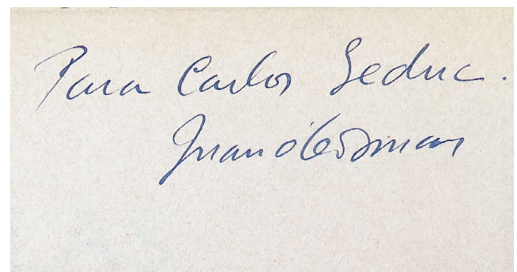 Para Carlos Leduc.
Juan O'Gorman